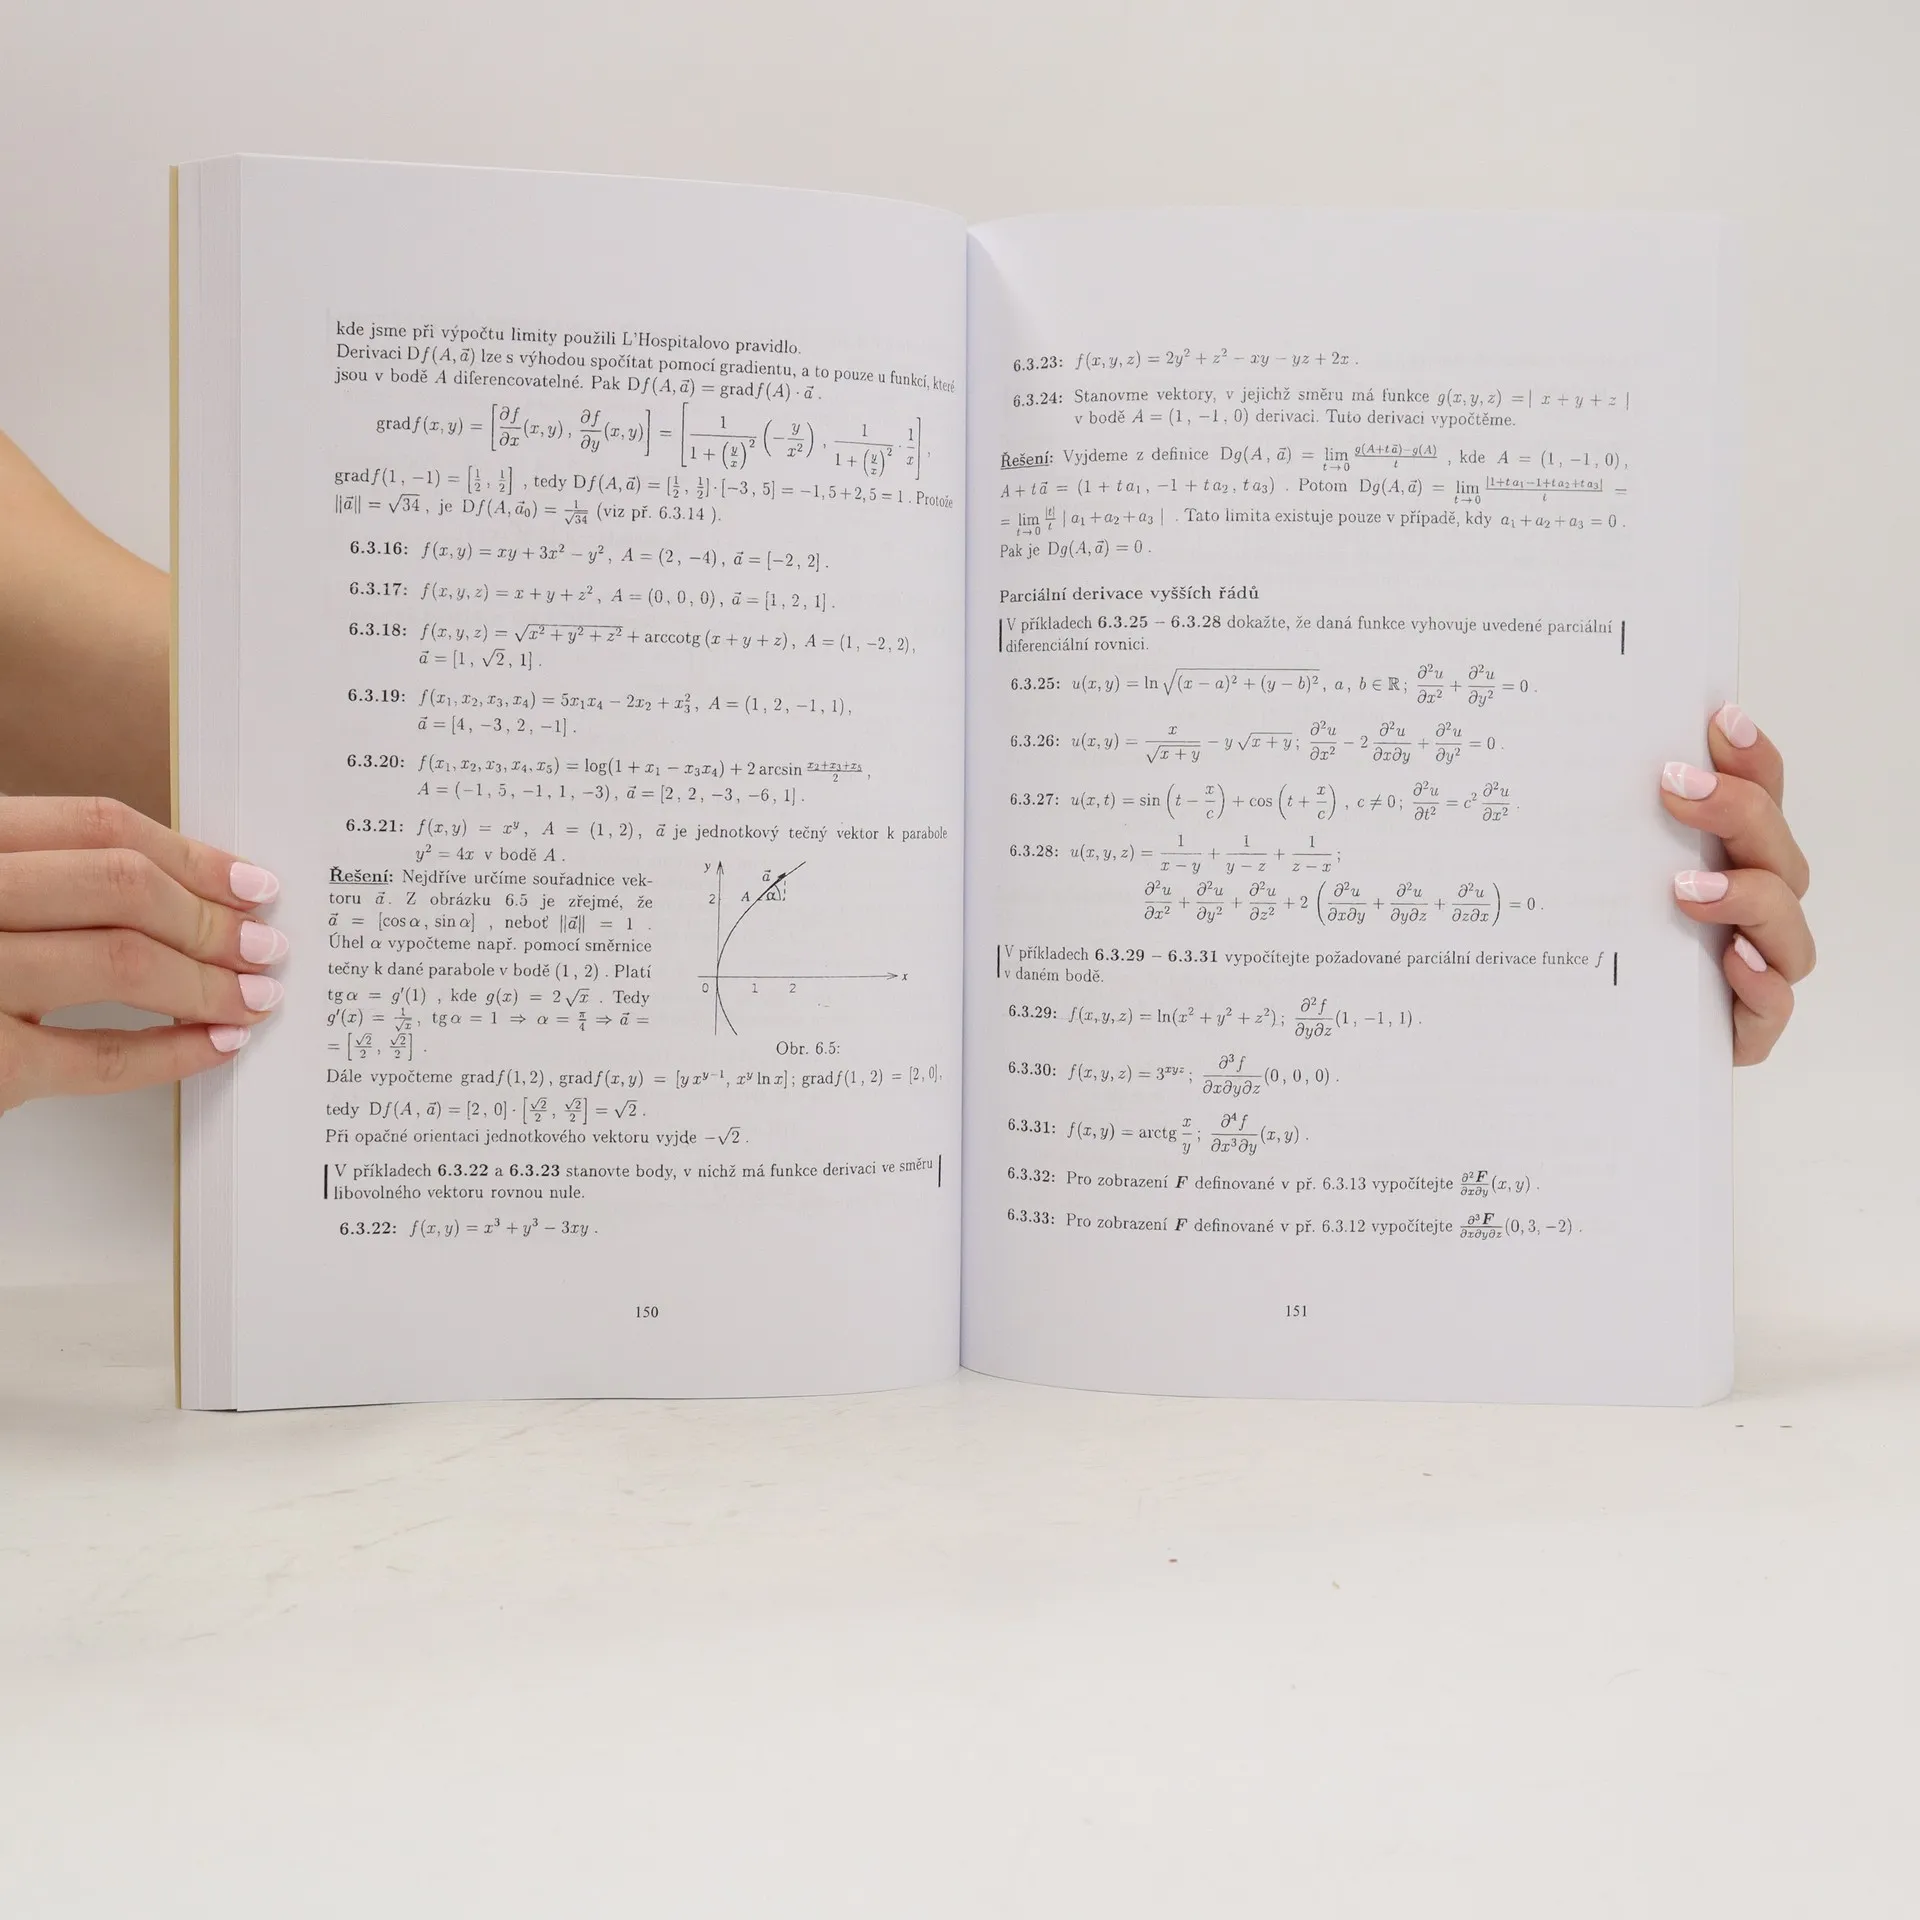 kde jsme při výpočtu limity použili L'Hospitalovo pravidlo.
Derivaci Df(A, a⃗) lze s výhodou spočítat pomocí gradientu, a to pouze u funkcí, které
jsou v bodě A diferencovatelné. Pak Df(A, a⃗) = gradf(A) · a⃗ .
gradf(x, y) = [∂f/∂x (x, y) , ∂f/∂y (x, y)] = [1/(1 + (y/x)²) (−y/x²) , 1/(1 + (y/x)²) · 1/x] ,
gradf(1 , −1) = [1/2 , 1/2] , tedy Df(A, a⃗) = [1/2 , 1/2] · [−3 , 5] = −1,5 + 2,5 = 1 . Protože
||a⃗|| = √34 , je Df(A, a⃗₀) = 1/√34 (viz př. 6.3.14 ).
6.3.16: f(x, y) = xy + 3x² − y² , A = (2 , −4) , a⃗ = [−2 , 2] .
6.3.17: f(x, y, z) = x + y + z² , A = (0 , 0 , 0) , a⃗ = [1 , 2 , 1] .
6.3.18: f(x, y, z) = √(x² + y² + z²) + arccotg (x + y + z) , A = (1 , −2 , 2) ,
a⃗ = [1 , √2 , 1] .
6.3.19: f(x₁, x₂, x₃, x₄) = 5x₁x₄ − 2x₂ + x₃² , A = (1 , 2 , −1 , 1) ,
a⃗ = [4 , −3 , 2 , −1] .
6.3.20: f(x₁, x₂, x₃, x₄, x₅) = log(1 + x₁ − x₃x₄) + 2 arcsin (x₂+x₃+x₅)/2 ,
A = (−1 , 5 , −1 , 1 , −3) , a⃗ = [2 , 2 , −3 , −6 , 1] .
6.3.21: f(x, y) = xʸ , A = (1 , 2) , a⃗ je jednotkový tečný vektor k parabole
y² = 4x v bodě A .
Řešení: Nejdříve určíme souřadnice vek-
toru a⃗. Z obrázku 6.5 je zřejmé, že
a⃗ = [cos α , sin α] , neboť ||a⃗|| = 1 .
Úhel α vypočteme např. pomocí směrnice
tečny k dané parabole v bodě (1 , 2) . Platí
tg α = g′(1) , kde g(x) = 2√x . Tedy
g′(x) = 1/√x , tg α = 1 ⇒ α = π/4 ⇒ a⃗ =
= [√2/2 , √2/2] .
y
2
A
a⃗
α
0
1
2
x
Obr. 6.5:
Dále vypočteme gradf(1, 2) , gradf(x, y) = [y xʸ⁻¹ , xʸ ln x] ; gradf(1 , 2) = [2 , 0] ,
tedy Df(A , a⃗) = [2 , 0] · [√2/2 , √2/2] = √2 .
Při opačné orientaci jednotkového vektoru vyjde −√2 .
V příkladech 6.3.22 a 6.3.23 stanovte body, v nichž má funkce derivaci ve směru
libovolného vektoru rovnou nule.
6.3.22: f(x, y) = x³ + y³ − 3xy .
150
6.3.23: f(x, y, z) = 2y² + z² − xy − yz + 2x .
6.3.24: Stanovme vektory, v jejichž směru má funkce g(x, y, z) = | x + y + z |
v bodě A = (1 , −1 , 0) derivaci. Tuto derivaci vypočtěme.
Řešení: Vyjdeme z definice Dg(A , a⃗) = lim t→0 (g(A+t a⃗)−g(A))/t , kde A = (1 , −1 , 0) ,
A + t a⃗ = (1 + t a₁ , −1 + t a₂ , t a₃) . Potom Dg(A, a⃗) = lim t→0 |1+t a₁−1+t a₂+t a₃|/t =
= lim t→0 |t|/t | a₁ + a₂ + a₃ | . Tato limita existuje pouze v případě, kdy a₁ + a₂ + a₃ = 0 .
Pak je Dg(A, a⃗) = 0 .
Parciální derivace vyšších řádů
V příkladech 6.3.25 − 6.3.28 dokažte, že daná funkce vyhovuje uvedené parciální
diferenciální rovnici.
6.3.25: u(x, y) = ln √((x − a)² + (y − b)²) , a , b ∈ ℝ ; ∂²u/∂x² + ∂²u/∂y² = 0 .
6.3.26: u(x, y) = x/√(x + y) − y √(x + y) ; ∂²u/∂x² − 2 ∂²u/∂x∂y + ∂²u/∂y² = 0 .
6.3.27: u(x, t) = sin (t − x/c) + cos (t + x/c) , c ≠ 0 ; ∂²u/∂t² = c² ∂²u/∂x² .
6.3.28: u(x, y, z) = 1/(x − y) + 1/(y − z) + 1/(z − x) ;
∂²u/∂x² + ∂²u/∂y² + ∂²u/∂z² + 2 (∂²u/∂x∂y + ∂²u/∂y∂z + ∂²u/∂z∂x) = 0 .
V příkladech 6.3.29 − 6.3.31 vypočítejte požadované parciální derivace funkce f
v daném bodě.
6.3.29: f(x, y, z) = ln(x² + y² + z²) ; ∂²f/∂y∂z (1 , −1 , 1) .
6.3.30: f(x, y, z) = 3ˣʸᶻ ; ∂³f/∂x∂y∂z (0 , 0 , 0) .
6.3.31: f(x, y) = arctg x/y ; ∂⁴f/∂x³∂y (x, y) .
6.3.32: Pro zobrazení F definované v př. 6.3.13 vypočítejte ∂²F/∂x∂y (x, y) .
6.3.33: Pro zobrazení F definované v př. 6.3.12 vypočítejte ∂³F/∂x∂y∂z (0, 3, −2) .
151